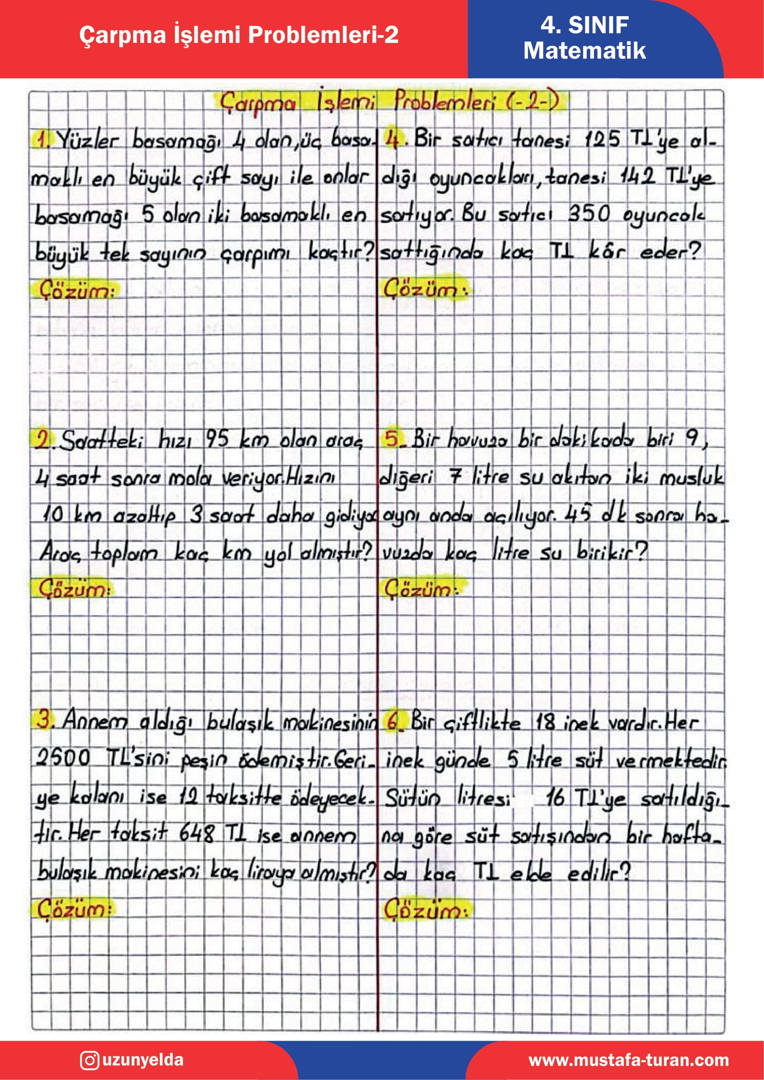 Çarpma İşlemi Problemleri-2
4. SINIF
Matematik
Çarpma İşlemi Problemleri (-2-)
1. Yüzler basamağı 4 olan, üç basa-
maklı en büyük çift sayı ile onlar
basamağı 5 olan iki basamaklı en
büyük tek sayının çarpımı kaçtır?
Çözüm:
2. Saatteki hızı 95 km olan araç
4 saat sonra mola veriyor. Hızını
10 km azaltıp 3 saat daha gidiyor
Araç toplam kaç km yol almıştır?
Çözüm:
3. Annem aldığı bulaşık makinesinin
2500 TL'sini peşin ödemiştir. Geri-
ye kalanı ise 12 taksitte ödeyecek-
tir. Her taksit 648 TL ise annem
bulaşık makinesini kaç liraya almıştır?
Çözüm:
4. Bir satıcı tanesi 125 TL'ye al-
dığı oyuncakları, tanesi 142 TL'ye
satıyor. Bu satıcı 350 oyuncak
sattığında kaç TL kâr eder?
Çözüm:
5. Bir havuza bir dakikada biri 9,
diğeri 7 litre su akıtan iki musluk
aynı anda açılıyor. 45 dk sonra ha-
vuzda kaç litre su birikir?
Çözüm:
6. Bir çiftlikte 18 inek vardır. Her
inek günde 5 litre süt vermektedir.
Sütün litresi 16 TL'ye satıldığı-
na göre süt satışından bir hafta-
da kaç TL elde edilir?
Çözüm:
uzunyelda
www.mustafa-turan.com